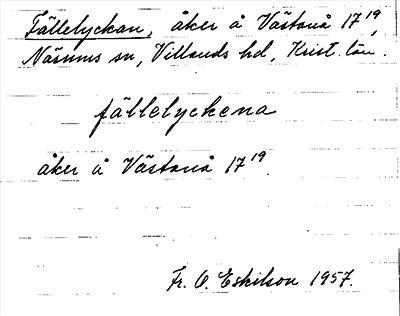 Fällelyckan, åker å Västanå 17¹⁹,
Näsums sn, Villands hd, Krist. län.
fällelyckena
åker å Västanå 17¹⁹.
Fr. O. Eskilson 1957.